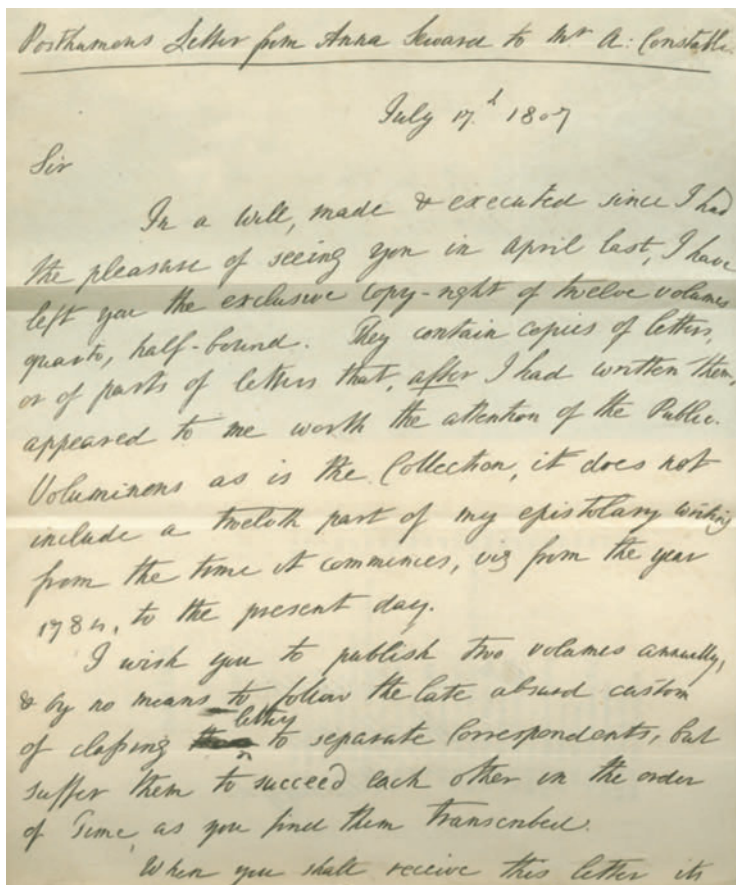 Posthumous Letter from Anna Seward to Mr A: Constable.
July 17.h 1807
Sir
In a will, made & executed since I had
the pleasure of seeing you in April last, I have
left you the exclusive copy-right of twelve volumes
quarto, half-bound. They contain copies of letters,
or of parts of letters that, after I had written them,
appeared to me worth the attention of the Public.
Voluminous as is the Collection, it does not
include a twelfth part of my epistolary writing
from the time it commences, viz from the year
1784, to the present day.
I wish you to publish two volumes annually,
& by no means to follow the late absurd custom
of classing letters to separate Correspondents, but
suffer them to succeed each other in the order
of Time, as you find them transcribed.
When you shall receive this letter its